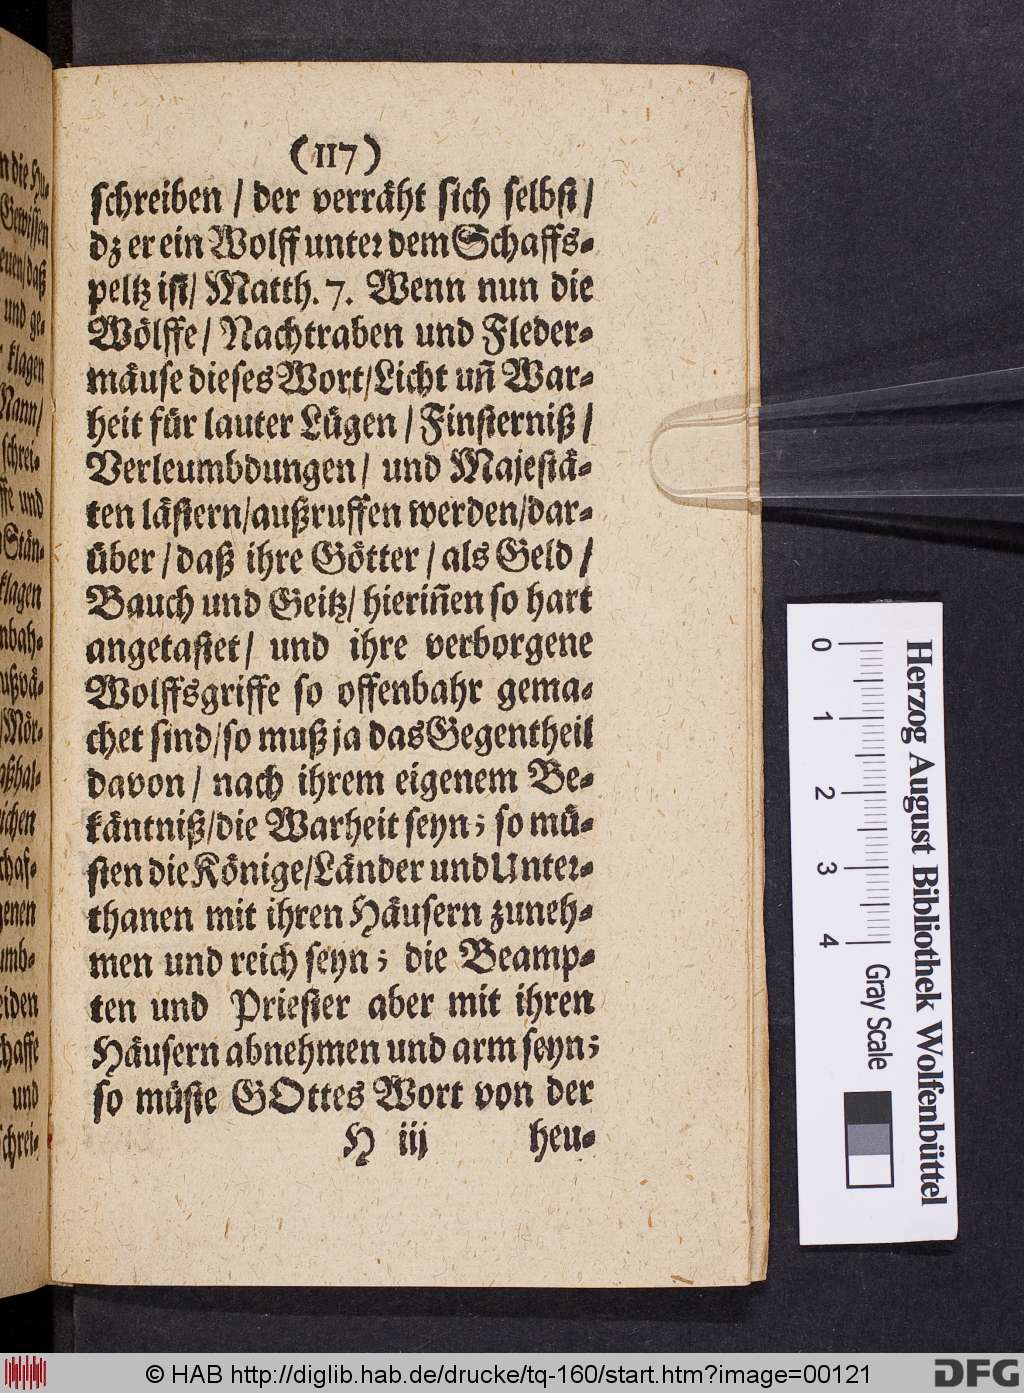 (117)
schreiben / der verräht sich selbst /
dz er ein Wolff unter dem Schaffs-
peltz ist / Matth. 7. Wenn nun die
Wölffe / Nachtraben und Fleder-
mäuse dieses Wort / Licht uñ War-
heit für lauter Lügen / Finsterniß /
Verleumbdungen / und Majestä-
ten lästern / außruffen werden / dar-
über / daß ihre Götter / als Geld /
Bauch und Geitz / hieriñen so hart
angetastet / und ihre verborgene
Wolffsgriffe so offenbahr gema-
chet sind / so muß ja das Gegentheil
davon / nach ihrem eigenem Be-
käntniß / die Warheit seyn ; so mü-
sten die Könige / Länder und Unter-
thanen mit ihren Häusern zuneh-
men und reich seyn ; die Beamp-
ten und Priester aber mit ihren
Häusern abnehmen und arm seyn ;
so müste GOttes Wort von der
H iij heu-
n die Hu-
Gewissen
euen / daß
und ge-
klagen
Mann /
schrei-
ffe und
Stän-
klagen
nbah-
ußvä-
/ Mör-
aßhal-
ichen
chaf-
genen
umb-
eiden
chaffe
und
schrei-
0 1 2 3 4 Gray Scale
Herzog August Bibliothek Wolfenbüttel
© HAB http://diglib.hab.de/drucke/tq-160/start.htm?image=00121
DFG